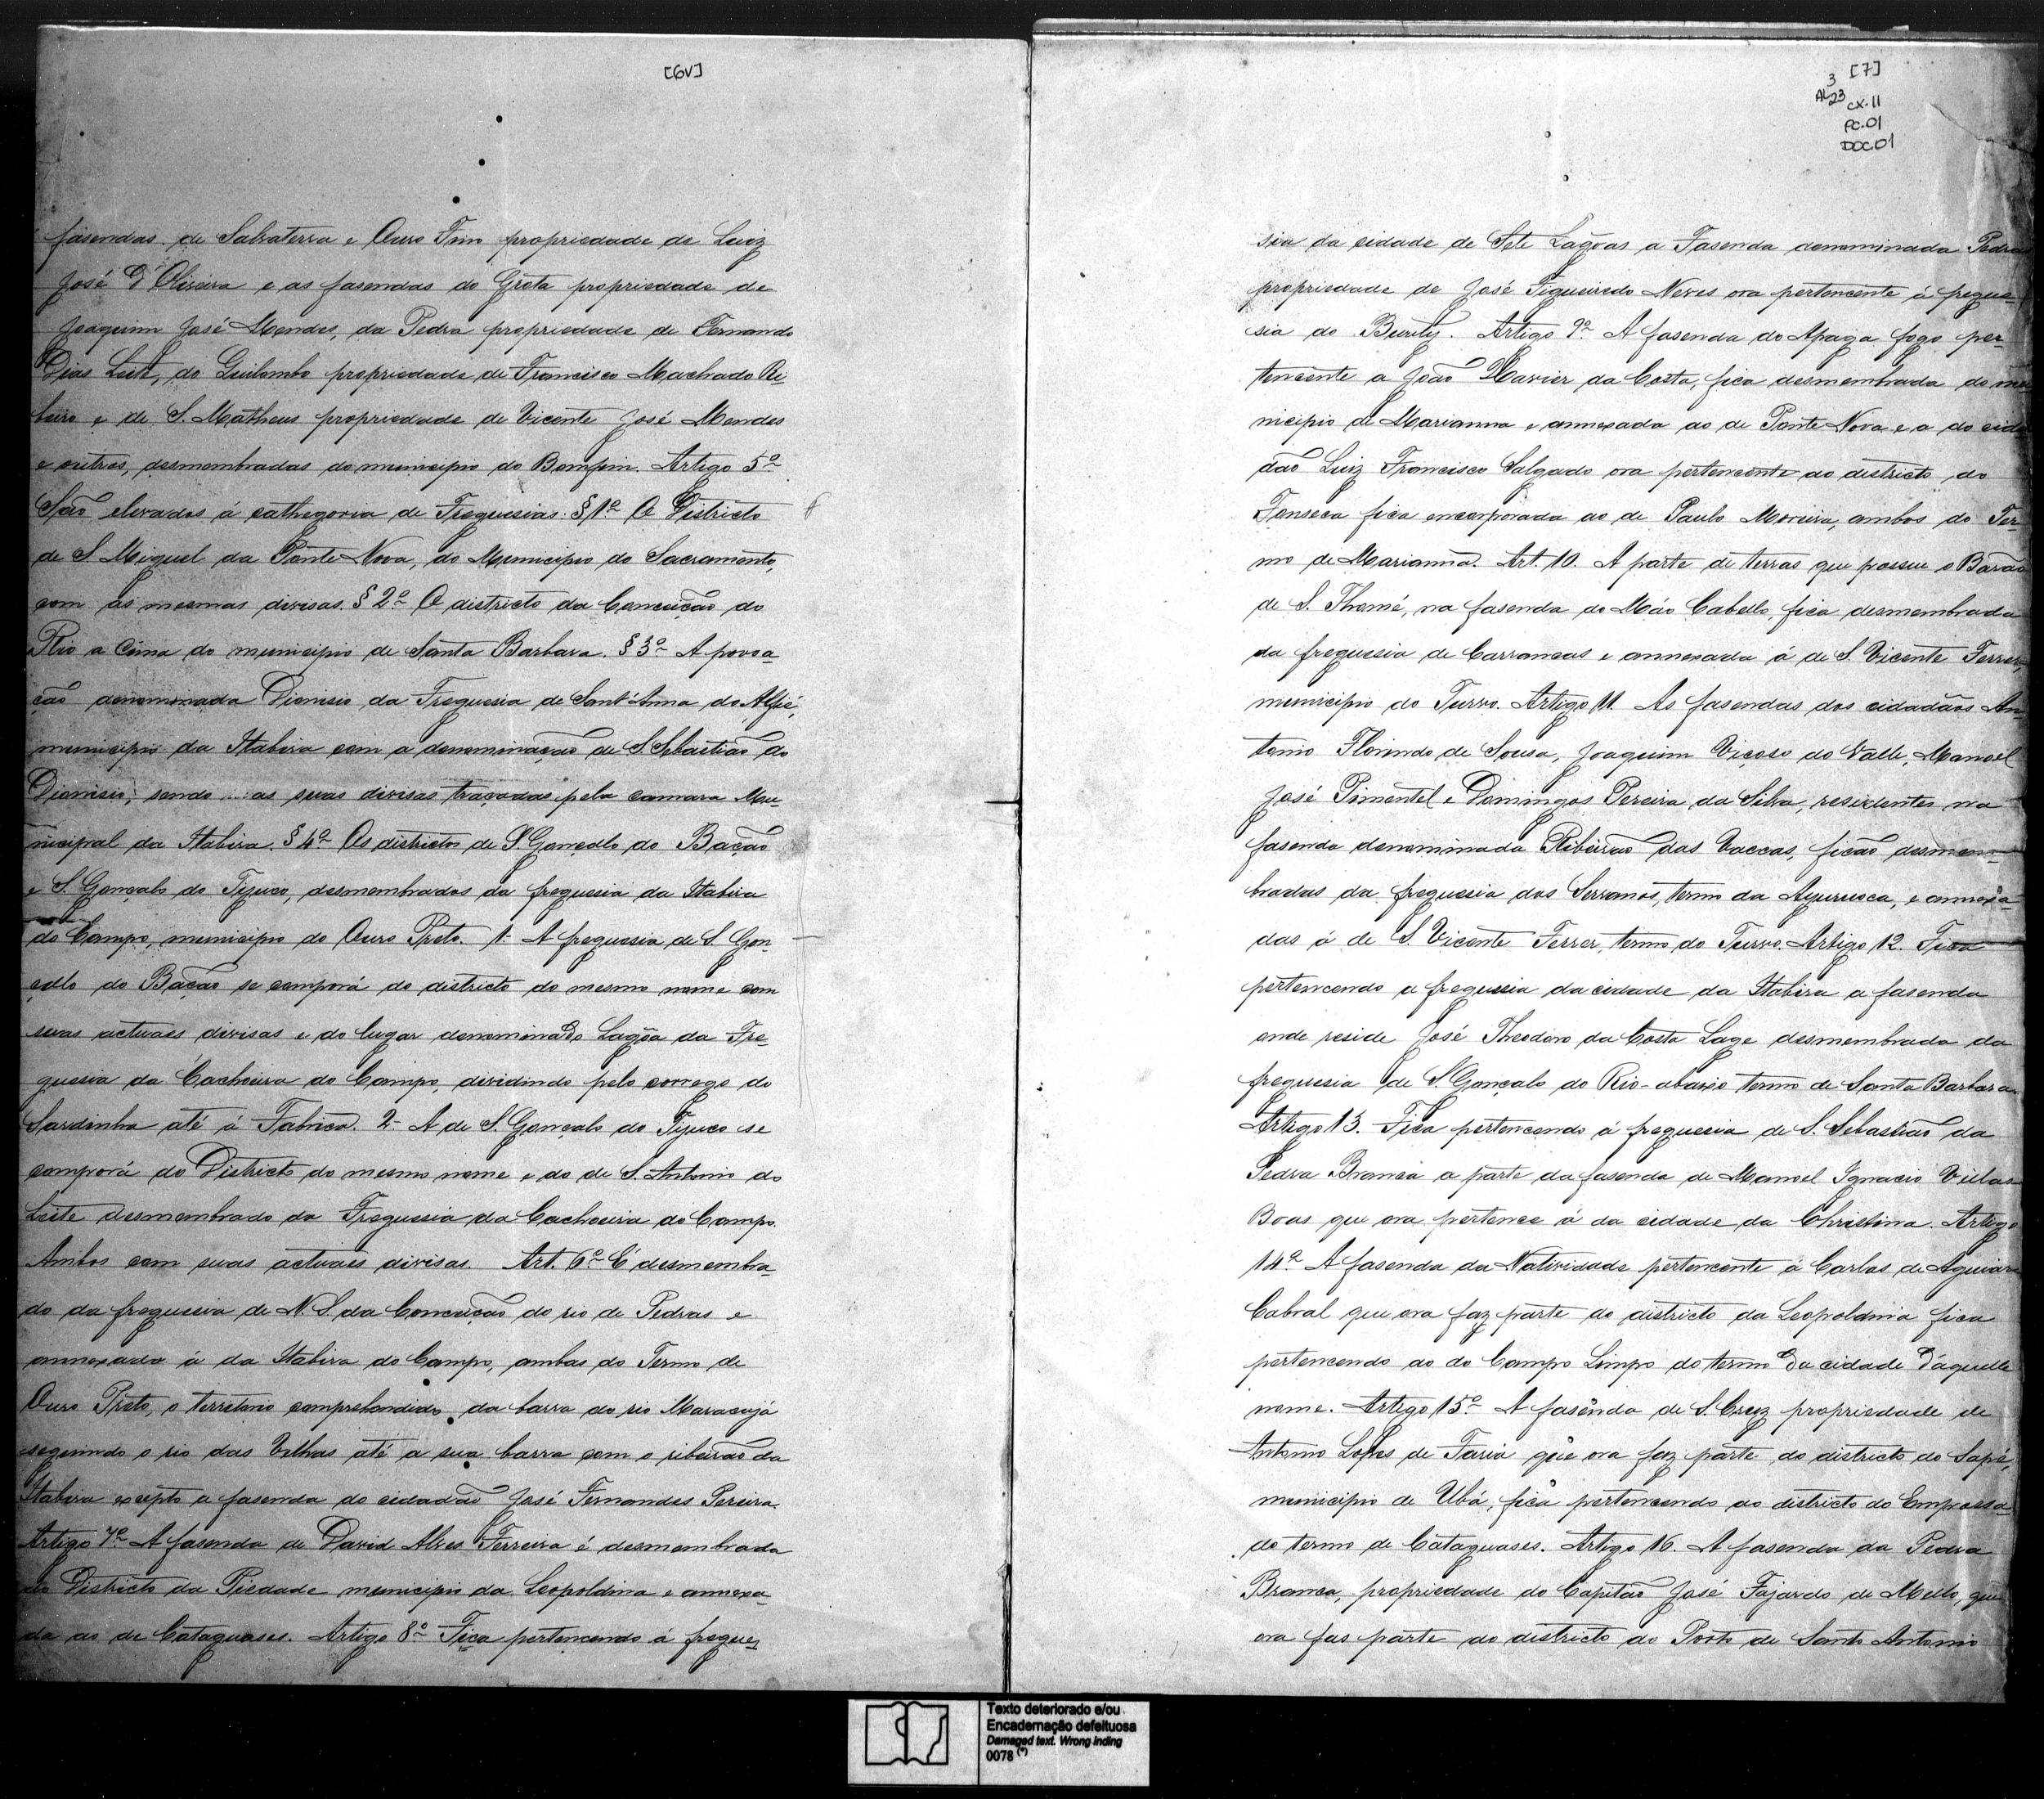 [6v]
fasendas de Salvaterra e Ouro Fino propriedade de Luiz
José d'Oliveira e as fasendas do Grota propriedade de
Joaquim José Mendes, da Pedra propriedade de Fernando
Dias Leite, do Quilombo propriedade de Francisco Machado Ri
beiro e de S. Matheus propriedade de Vicente José Mendes
e outros, desmembradas do municipio do Bomfim. Artigo 5º
São elevados á cathegoria de Freguesias. § 1º O Districto
de S. Miguel da Ponte Nova, do Municipio do Sacramento,
com as mesmas divisas. § 2º O districto da Conceição do
Rio a Cima do municipio de Santa Barbara. § 3º A povoa
ção denominada Dionisio da Freguesia de Sant'Anna do Alfié,
municipio da Itabira com a denominação de S. Sebastião do
Dionisio, sendo as suas divisas traçadas pela camara Mu
nicipal da Itabira. § 4º Os districtos de S. Gonçallo do Bação
e S. Gonçalo do Tijuco, desmembrados da freguesia da Itabira
do Campo, municipio do Ouro Preto. 1- A freguesia de S. Gon
çallo do Bação se comporá do districto do mesmo nome com
suas actuaes divisas e do lugar denominado Lagôa da Fre-
guesia da Cachoeira do Campo, dividindo pelo corrego do
Sardinha até á Fabrica. 2- A de S. Gonçalo do Tijuco se
comporá do Districto do mesmo nome e do de S. Antonio do
Leite desmembrado da Freguesia da Cachoeira do Campo.
Ambos com suas actuaes divisas. Art. 6º É desmembra-
do da freguesia de N. S. da Conceição do rio de Pedras e
annexado á da Itabira do Campo, ambas do Termo de
Ouro Preto, o territorio comprehendido da barra do rio Maracujá
seguindo o rio das Velhas até a sua barra com o ribeirão da
Itabira excepto a fasenda do cidadão José Fernandes Pereira.
Artigo 7º A fasenda de David Alves Ferreira é desmembrada
do Districto da Piedade municipio da Leopoldina e annexa-
da ao de Cataguases. Artigo 8º Fica pertencendo á fregue-
[7]
3
AL 23 CX.11
PC.01
DOC.01
sia da cidade de Sete Lagôas a Fasenda denominada Pedra
propriedade de José Figueiredo Neves ora pertencente á fregue-
sia do Burity. Artigo 9º A fasenda do Apaga fogo per-
tencente a João Xavier da Costa, fica desmembrada do mu
nicipio de Marianna e annexada ao de Ponte Nova e a do cida
dão Luiz Francisco Salgado ora pertencente ao districto do
Fonseca fica encorporada ao de Paulo Moreira, ambos do Ter-
mo de Marianna. Art. 10. A parte de terras que possue o Barão
de S. Thomé, na fasenda do Máo Cabello, fica desmembrada
da freguesia de Carrancas e annexada á de S. Vicente Ferrer,
municipio do Turvo. Artigo 11. As fasendas dos cidadãos An
tonio Florindo de Sousa, Joaquim Viçoso do Valle, Manoel
José Pimentel e Domingos Pereira da Silva, residentes na
fasenda denominada Ribeirão das Vaccas, ficão desmem-
bradas da freguesia dos Serranos, termo da Ayuruoca, e annexa-
das á de S. Vicente Ferrer, termo do Turvo. Artigo 12. Fica
pertencendo a freguesia da cidade da Itabira a fasenda
onde reside José Theodoro da Costa Lage desmembrada da
freguesia de S. Gonçalo do Rio-abaixo termo de Santa Barbara.
Artigo 13. Fica pertencendo á freguesia de S. Sebastião da
Pedra Branca a parte da fasenda de Manoel Ignacio Villas
Boas que ora pertence á da cidade da Christina. Artigo
14º A fasenda da Natividade pertencente a Carlos de Aguiar
Cabral que ora faz parte do districto da Leopoldina fica
pertencendo ao do Campo Limpo do termo da cidade d'aquelle
nome. Artigo 15º A fasenda de S. Cruz propriedade de
Antonio Lopes de Faria que ora faz parte do districto do Sapé,
municipio de Ubá, fica pertencendo ao districto do Empossa-
do termo de Cataguases. Artigo 16. A fasenda da Pedra
Branca, propriedade do Capitão José Fajardo de Mello, que
ora fas parte do districto do Porto de Santo Antonio
Texto deteriorado e/ou
Encadernação defeituosa
Damaged text. Wrong inding
0078 (*)